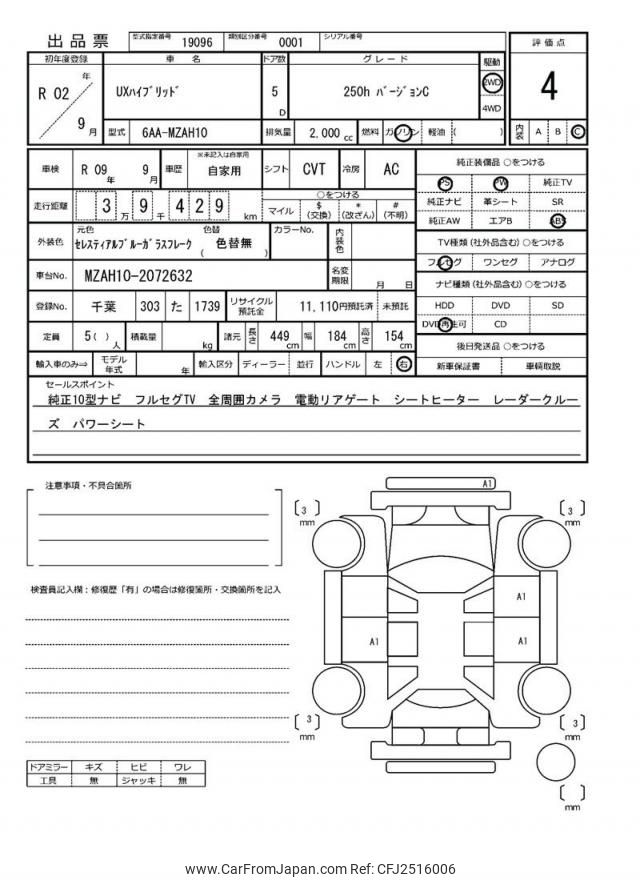 出品票 型式指定番号 19096 類別区分番号 0001 シリアル番号
評価点
4
内装 A B C
初年度登録 車名 ドア数 グレード 駆動
R 02 年 9 月 UXハイブリッド 5 D 250h バージョンC 2WD
4WD
型式 6AA-MZAH10 排気量 2,000 cc 燃料 ガソリン 軽油 ( )
車検 R 09 年 9 月 車歴 ※未記入は自家用 自家用 シフト CVT 冷房 AC
走行距離 3 万 9 千 4 2 9 km ○をつける
マイル $ (交換) * (改ざん) # (不明)
外装色 元色 セレスティアルブルーガラスフレーク 色替 ( 色替無 ) カラーNo. 内装色
車台No. MZAH10-2072632 名変期限 月 日
登録No. 千葉 303 た 1739 リサイクル預託金 11,110円預託済 未預託
定員 5( ) 人 積載量 kg 諸元 長さ 449 cm 幅 184 cm 高さ 154 cm
輸入車のみ⇒ モデル年式 年 輸入区分 ディーラー 並行 ハンドル 左 右
純正装備品 ○をつける
PS PW 純正TV
純正ナビ 革シート SR
純正AW エアB ABS
TV種類(社外品含む) ○をつける
フルセグ ワンセグ アナログ
ナビ種類(社外品含む) ○をつける
HDD DVD SD
DVD再生可 CD
後日発送品 ○をつける
新車保証書 車輌取説
セールスポイント
純正10型ナビ フルセグTV 全周囲カメラ 電動リアゲート シートヒーター レーダークルー
ズ パワーシート
注意事項・不具合箇所
検査員記入欄：修復歴「有」の場合は修復箇所・交換箇所を記入
ドアミラー キズ ヒビ ワレ
工具 無 ジャッキ 無
A1
〔 3 〕 mm 〔 3 〕 mm
A1
A1 A1
〔 3 〕 mm 〔 3 〕 mm
〔 〕 mm
www.CarFromJapan.com Ref: CFJ2516006